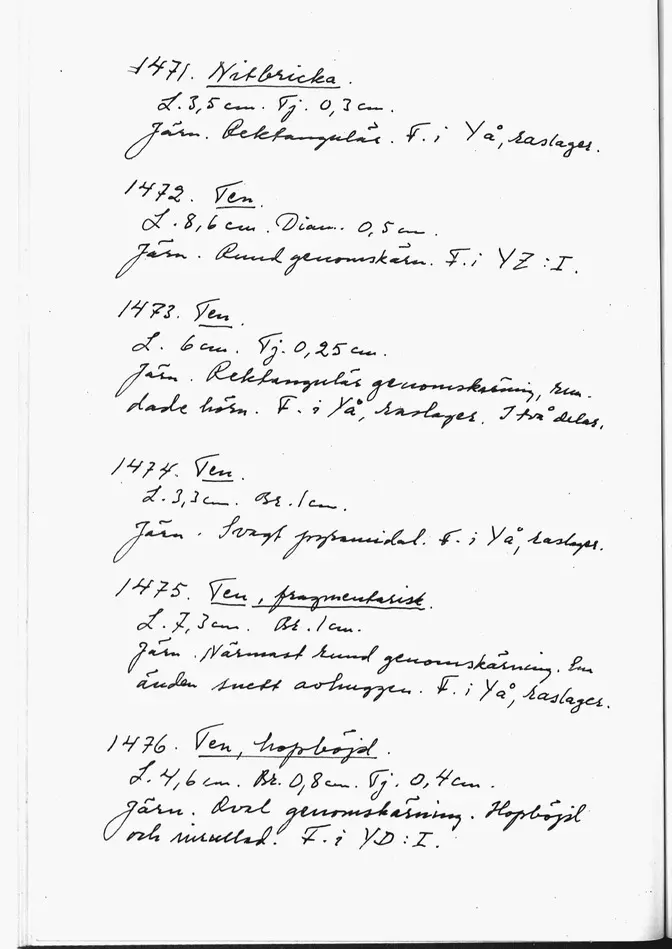 1471. Nitbricka.
L. 3,5 cm. Tj. 0,3 cm.
Järn. Rektangulär. F. i Yå, raslager.
1472. Ten.
L. 8,6 cm. Diam. 0,5 cm.
Järn. Rund genomskärn. F. i YZ:I.
1473. Ten.
L. 6 cm. Tj. 0,25 cm.
Järn. Rektangulär genomskärning, run-
dade hörn. F. i Yå, raslager. I två delar.
1474. Ten.
L. 3,3 cm. Br. 1 cm.
Järn. Svagt pyramidal. F. i Yå, raslager.
1475. Ten, fragmentarisk.
L. 7,3 cm. Br. 1 cm.
Järn. Närmast rund genomskärning. Ena
änden snett avhuggen. F. i Yå, raslager.
1476. Ten, hopböjd.
L. 4,6 cm. Br. 0,8 cm. Tj. 0,4 cm.
Järn. Oval genomskärning. Hopböjd
och inrullad. F. i YD:I.